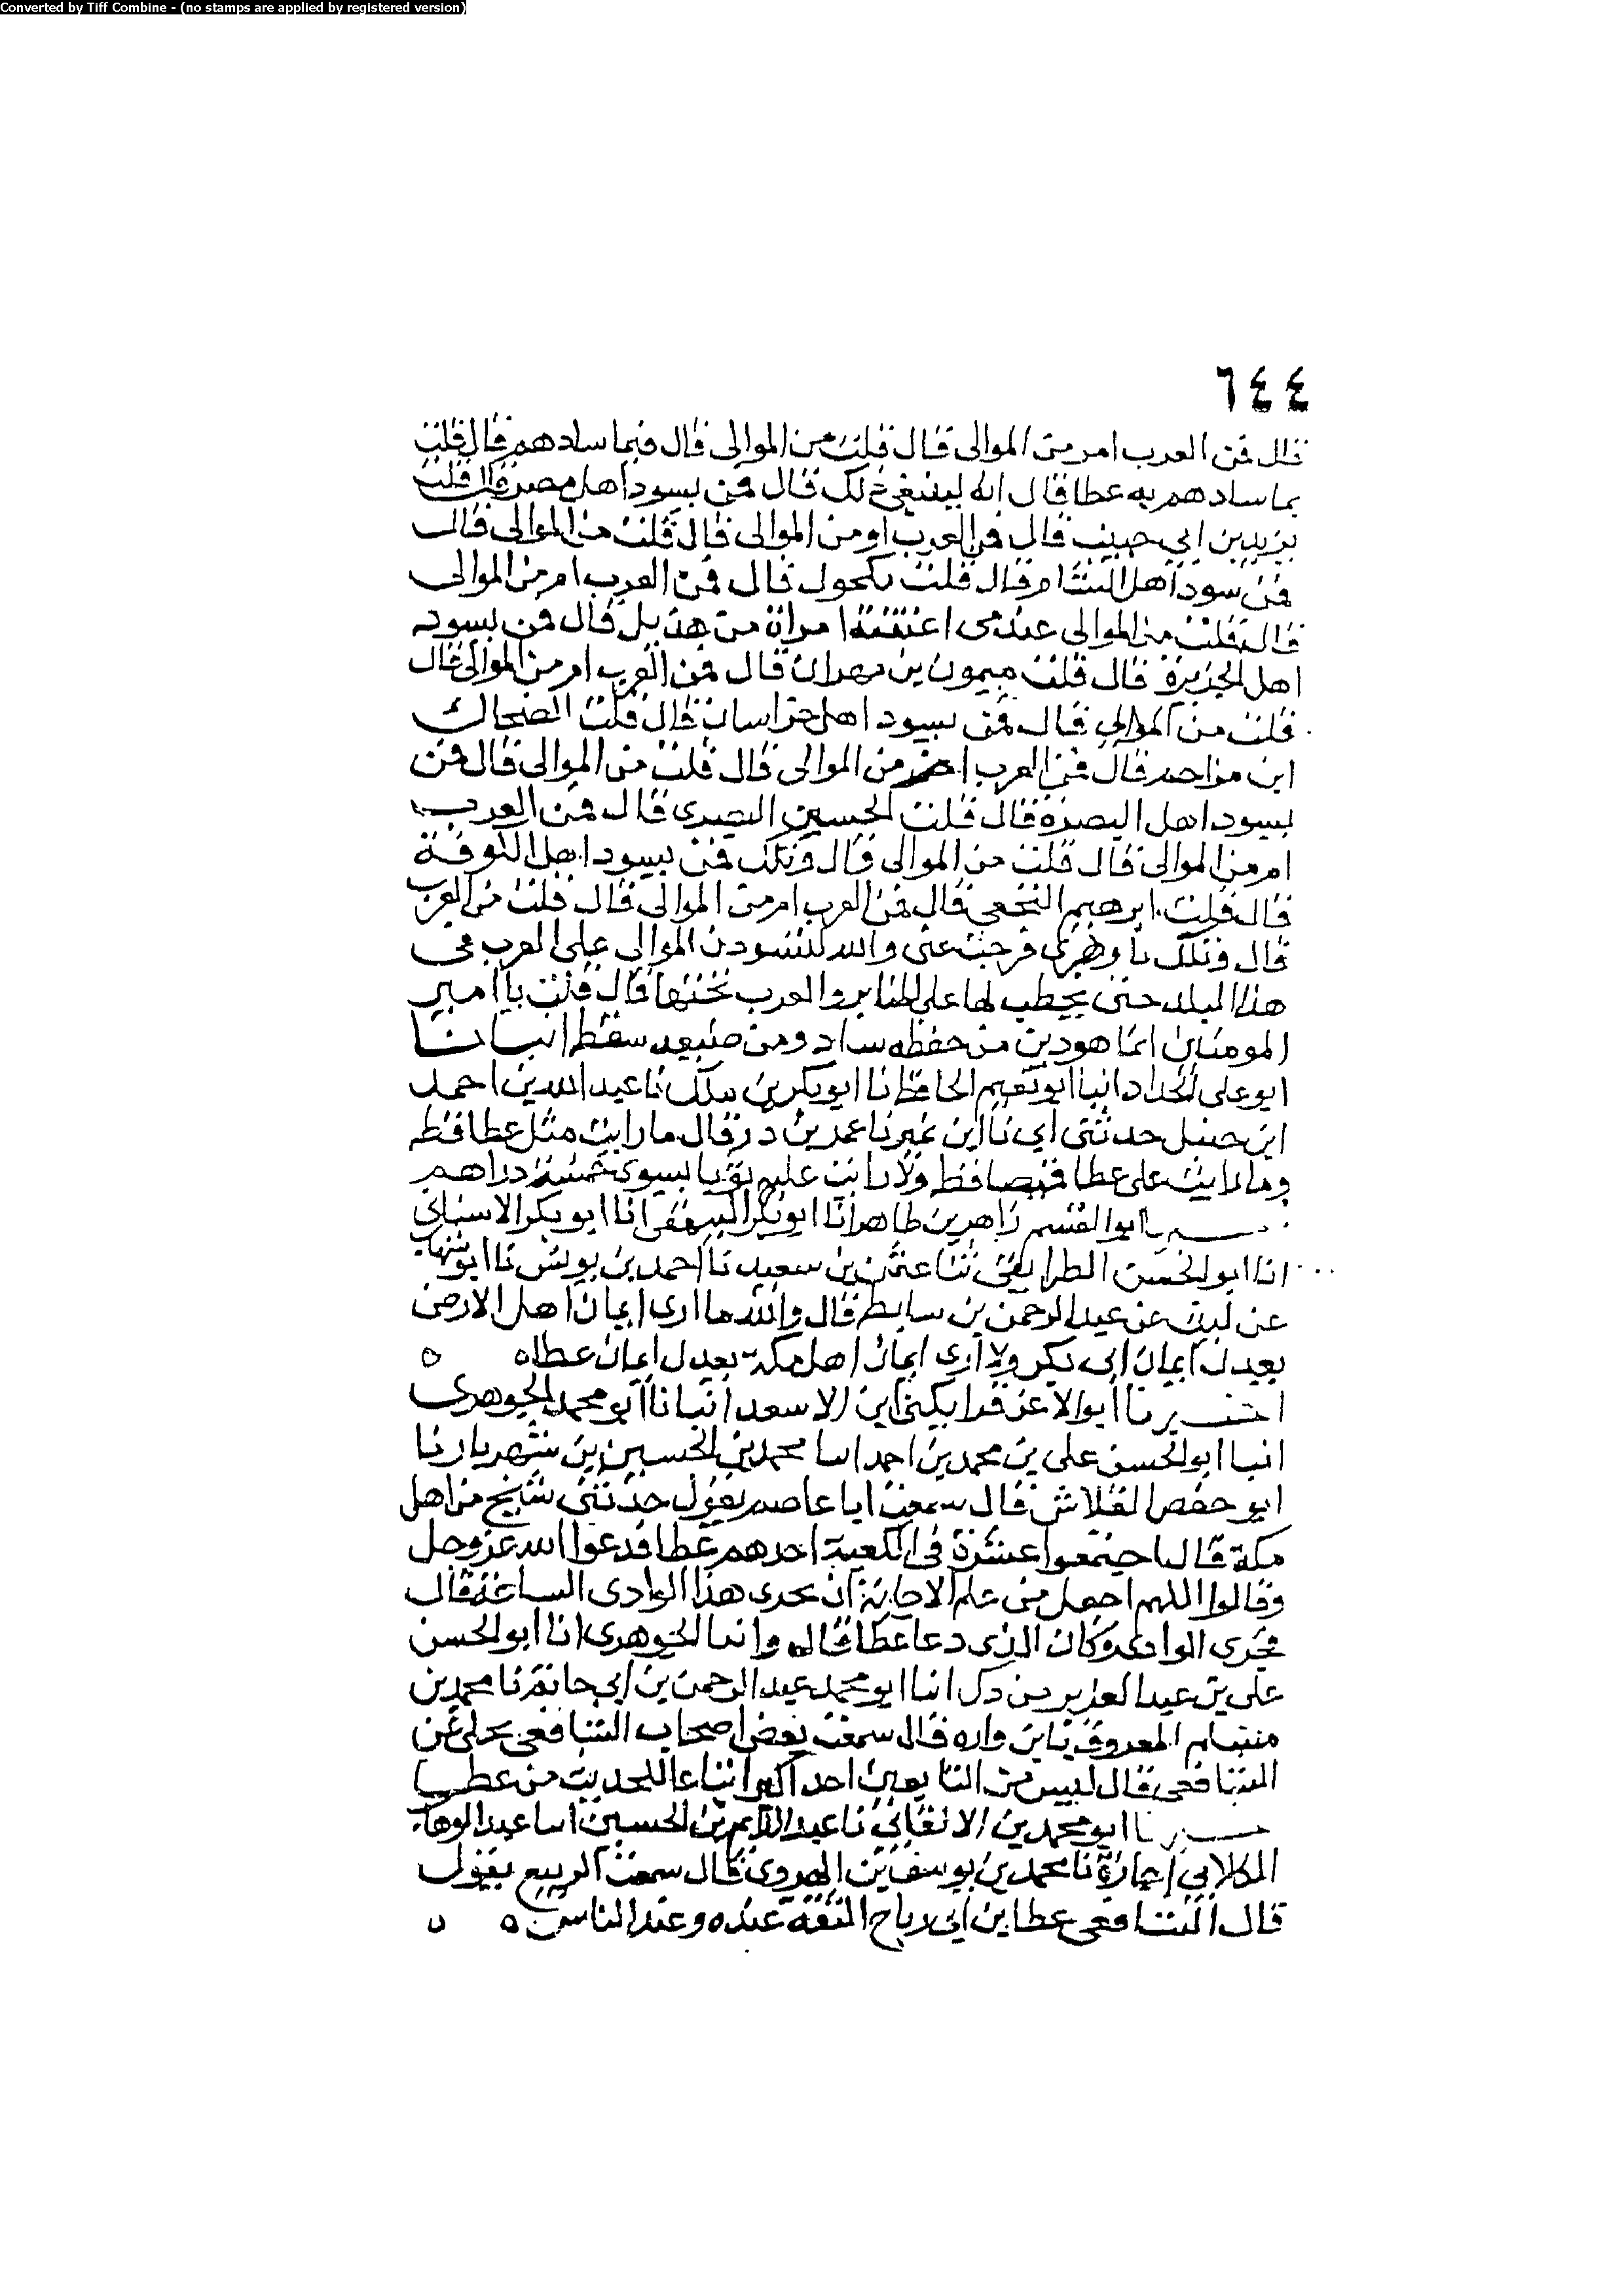 Converted by Tiff Combine - (no stamps are applied by registered version)
٦٤٤
قال فمن العرب ام من الموالى قال قلت من الموالى قال فبما سادهم قال قلت
بما سادهم به عطا قال انه لينبغي ذلك قال فمن يسود اهل مصر قال قلت
يزيد بن ابي حبيب قال فمن العرب او من الموالى قال قلت من الموالى قال
فمن يسود اهل الشام قال قلت مكحول قال فمن العرب ام من الموالى
قال فقلت من الموالى عبد اعتقته امراة من هذيل قال فمن يسود
اهل الجزيرة قال قلت ميمون بن مهران قال فمن العرب ام من الموالى قال
قلت من الموالى قال فمن يسود اهل خراسان قال قلت الضحاك
ابن مزاحم قال فمن العرب ام من الموالى قال قلت من الموالى قال فمن
يسود اهل البصرة قال قلت الحسن البصرى قال فمن العرب
ام من الموالى قال قلت من الموالى قال ويلك فمن يسود اهل الكوفة
قال قلت ابرهيم النخعى قال فمن العرب ام من الموالى قال قلت من العرب
قال ويلك يا زهرى فرجت عنى والله لتسودن الموالى على العرب فى
هذا البلد حتى يخطب لها على المنابر والعرب تحتها قال قلت يا امير
المومنين انما هو دين من حفظه ساد ومن ضيعه سقط انبانا
ابو على الحداد انبا ابو نعيم الحافظ نا ابو بكر بن ملك نا عبد الله بن احمد
ابن حنبل حدثنى ابي نا ابن نمير نا عمر بن ذر قال ما رايت مثل عطا قط
وما رايت على عطا قميصا قط ولا رايت عليه ثوبا يسوى خمسة دراهم
ابو القسم زاهر بن طاهر انا ابو بكر البيهقى انا ابو بكر الاشنانى
انا ابو الحسن الطرايفى ثنا عثمن بن سعيد نا احمد بن يونس نا ابو شهاب
عن ليث عن عبد الرحمن بن سابط قال والله ما ارى ايمان اهل الارض
يعدل ايمان ابى بكر ولا ارى ايمان اهل مكة يعدل ايمان عطا ه ه
اخبرنا ابو الاعز قراتكين ابن الاسعد انبانا ابو محمد الجوهرى
انبا ابو الحسن على بن محمد بن احمد انبا محمد بن الحسين بن شهريار نا
ابو حفص الفلاس قال سمعت ابا عاصم يقول حدثنى شيخ من اهل
مكة قال اجتمعوا عشرة فى الكعبة احدهم عطا فدعوا الله عز وجل
وقالوا اللهم اجعل من علم الاجابة ان يجرى هذا الوادى الساعة قال
فجرى الوادى وكان الذى دعا عطا قال وانبا الجوهرى انا ابو الحسن
على بن عبد العزيز بن مردك انبا ابو محمد عبد الرحمن بن ابي حاتم نا محمد بن
مسلم المعروف بابن واره قال سمعت بعض اصحاب الشافعى يحكى عن
الشافعى قال ليس من التابعين احد اكثر اتباعا للحديث من عطا
ابو محمد بن الاكفانى نا عبد الكريم بن الحسين انبا عبد الوهاب
الكلابي اجازة نا محمد بن يوسف بن الهروى قال سمعت الربيع يقول
قال الشافعى عطا بن ابي رباح الثقة عنده وعند الناس ه ه